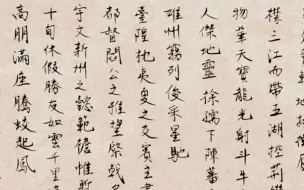 襟三江而帶五湖控荆
物華天寶龍光射斗牛
人傑地靈徐孺下陳蕃
雄州霧列俊采星馳
臺隍枕夷夏之交賓主
都督閻公之雅望棨戟
宇文新州之懿範襜帷暫
十旬休假勝友如雲千里
高朋滿座騰蛟起鳳